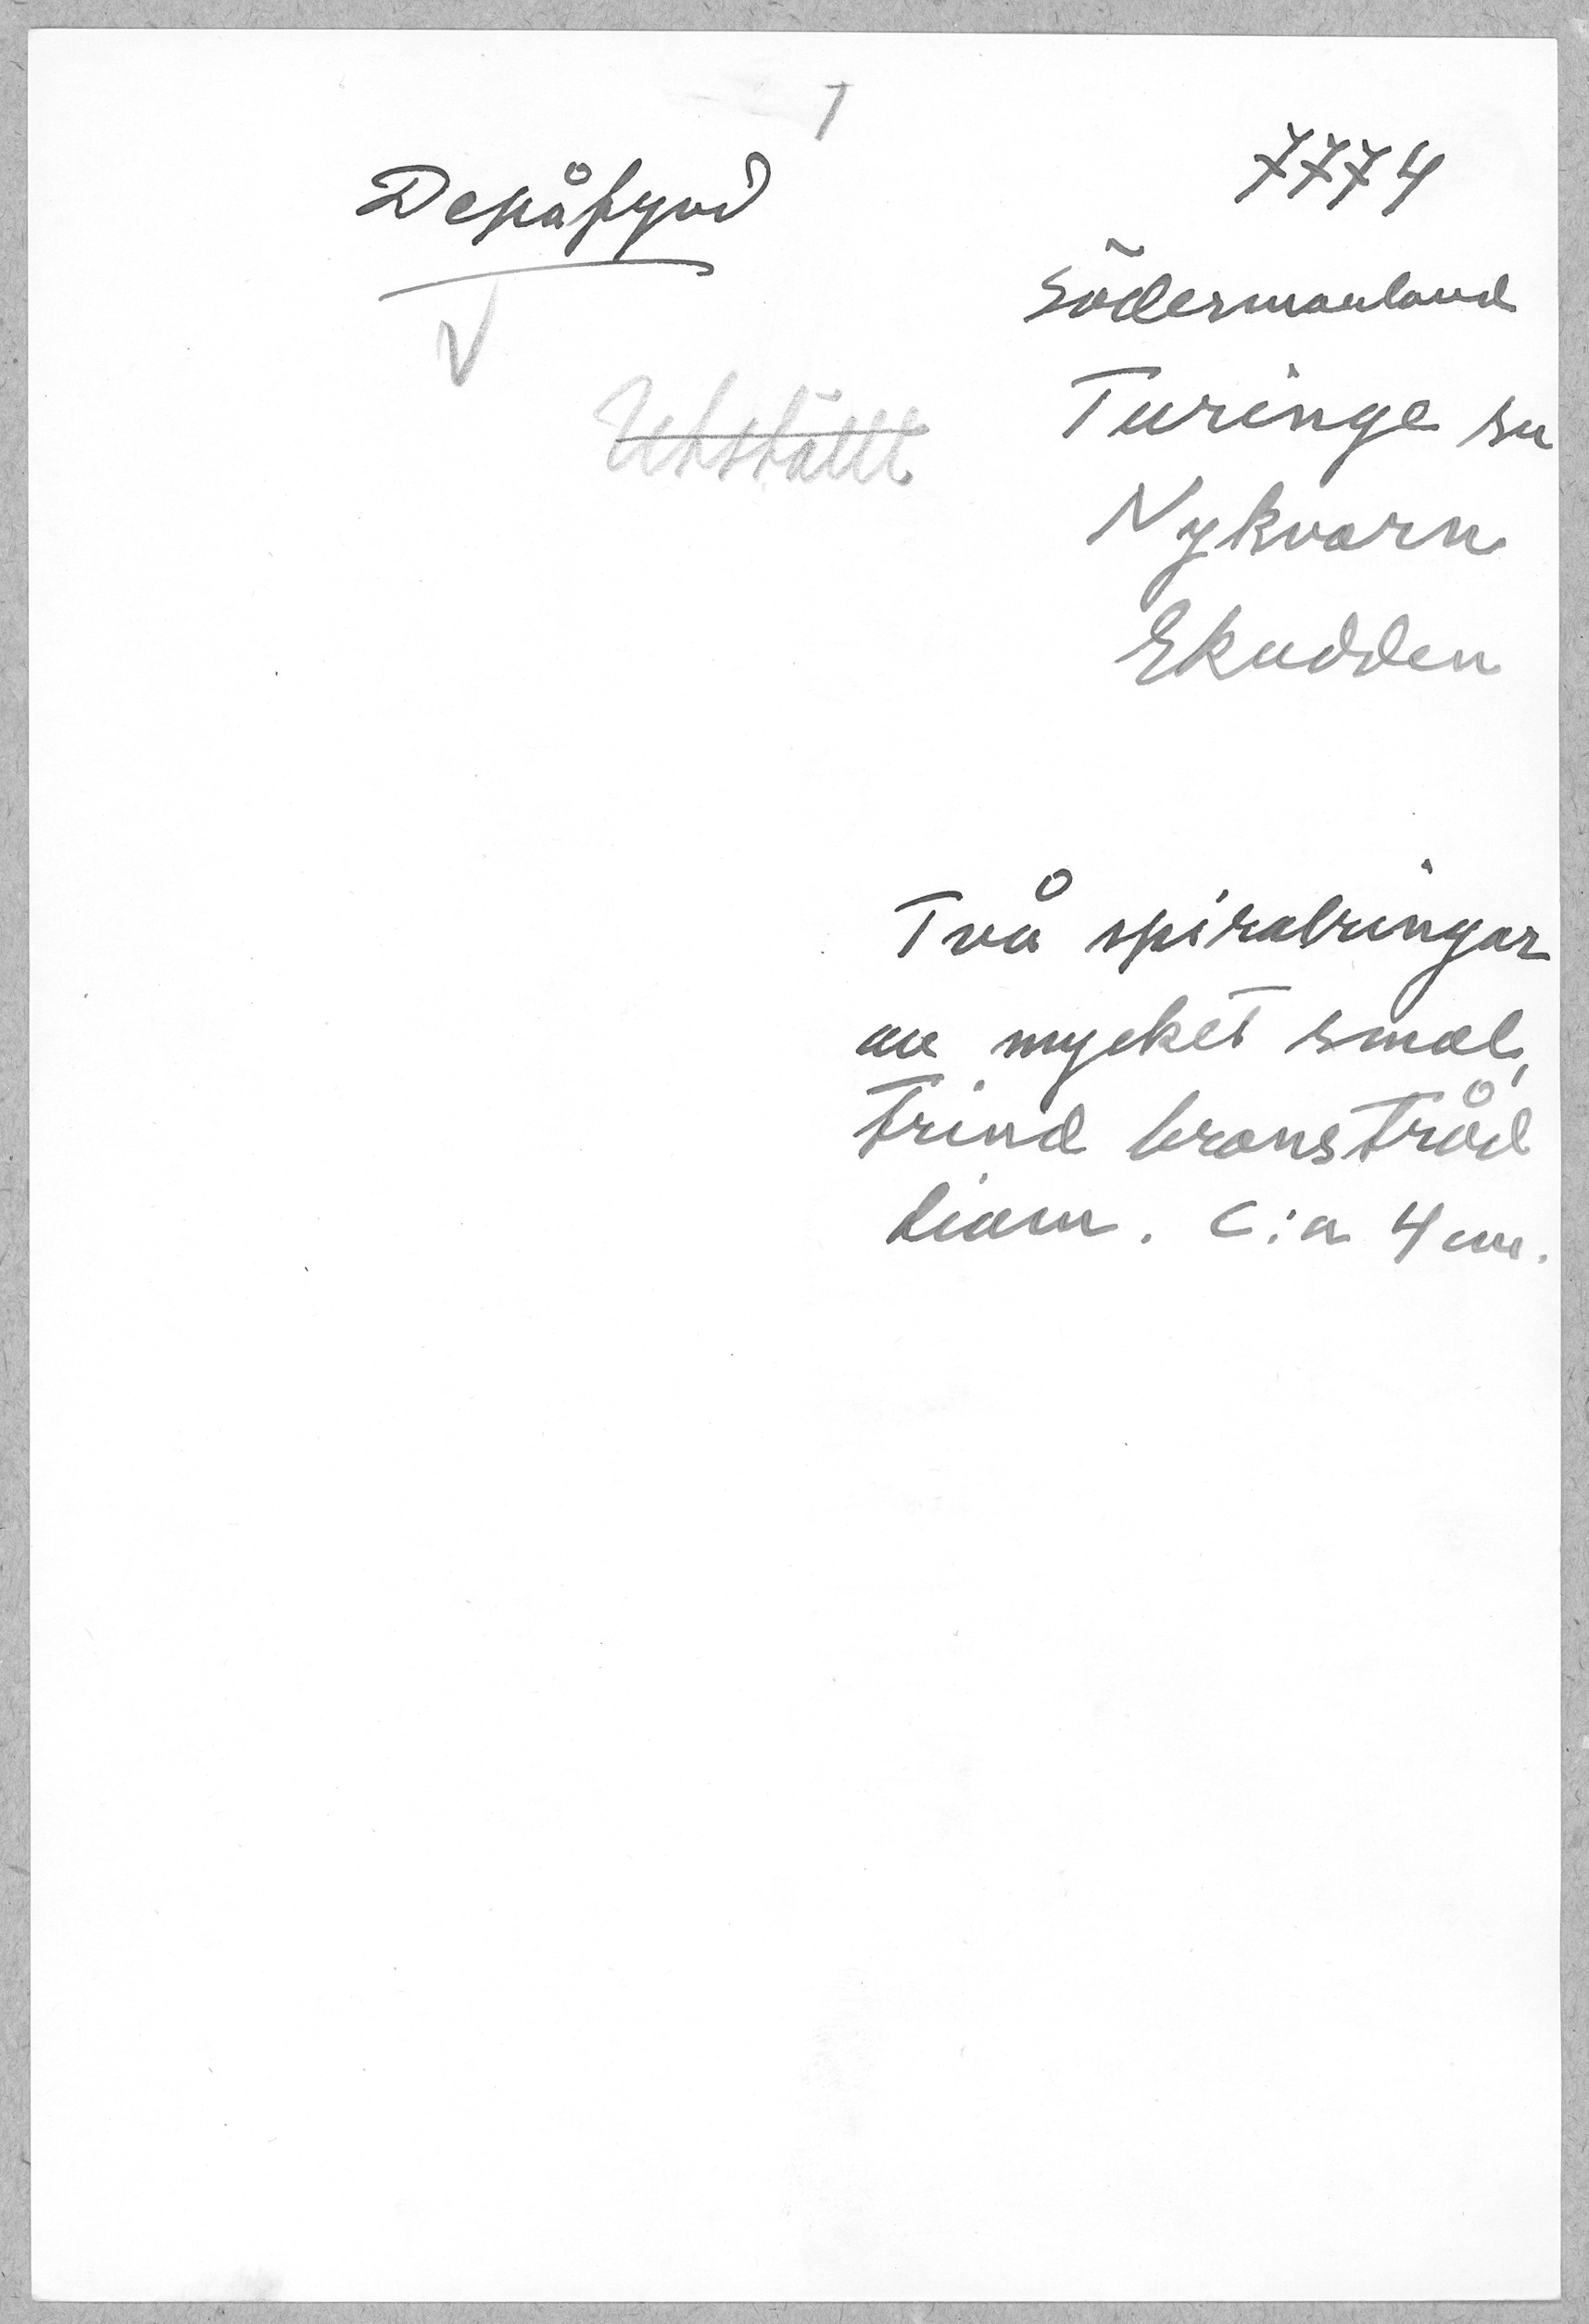 1
Depåfynd
7774
Södermanland
V
Utställt
Turinge sn
Nykvarn
Ekudden
Två spiralringar
av mycket smal,
trind bronstråd
diam. c:a 4 cm.